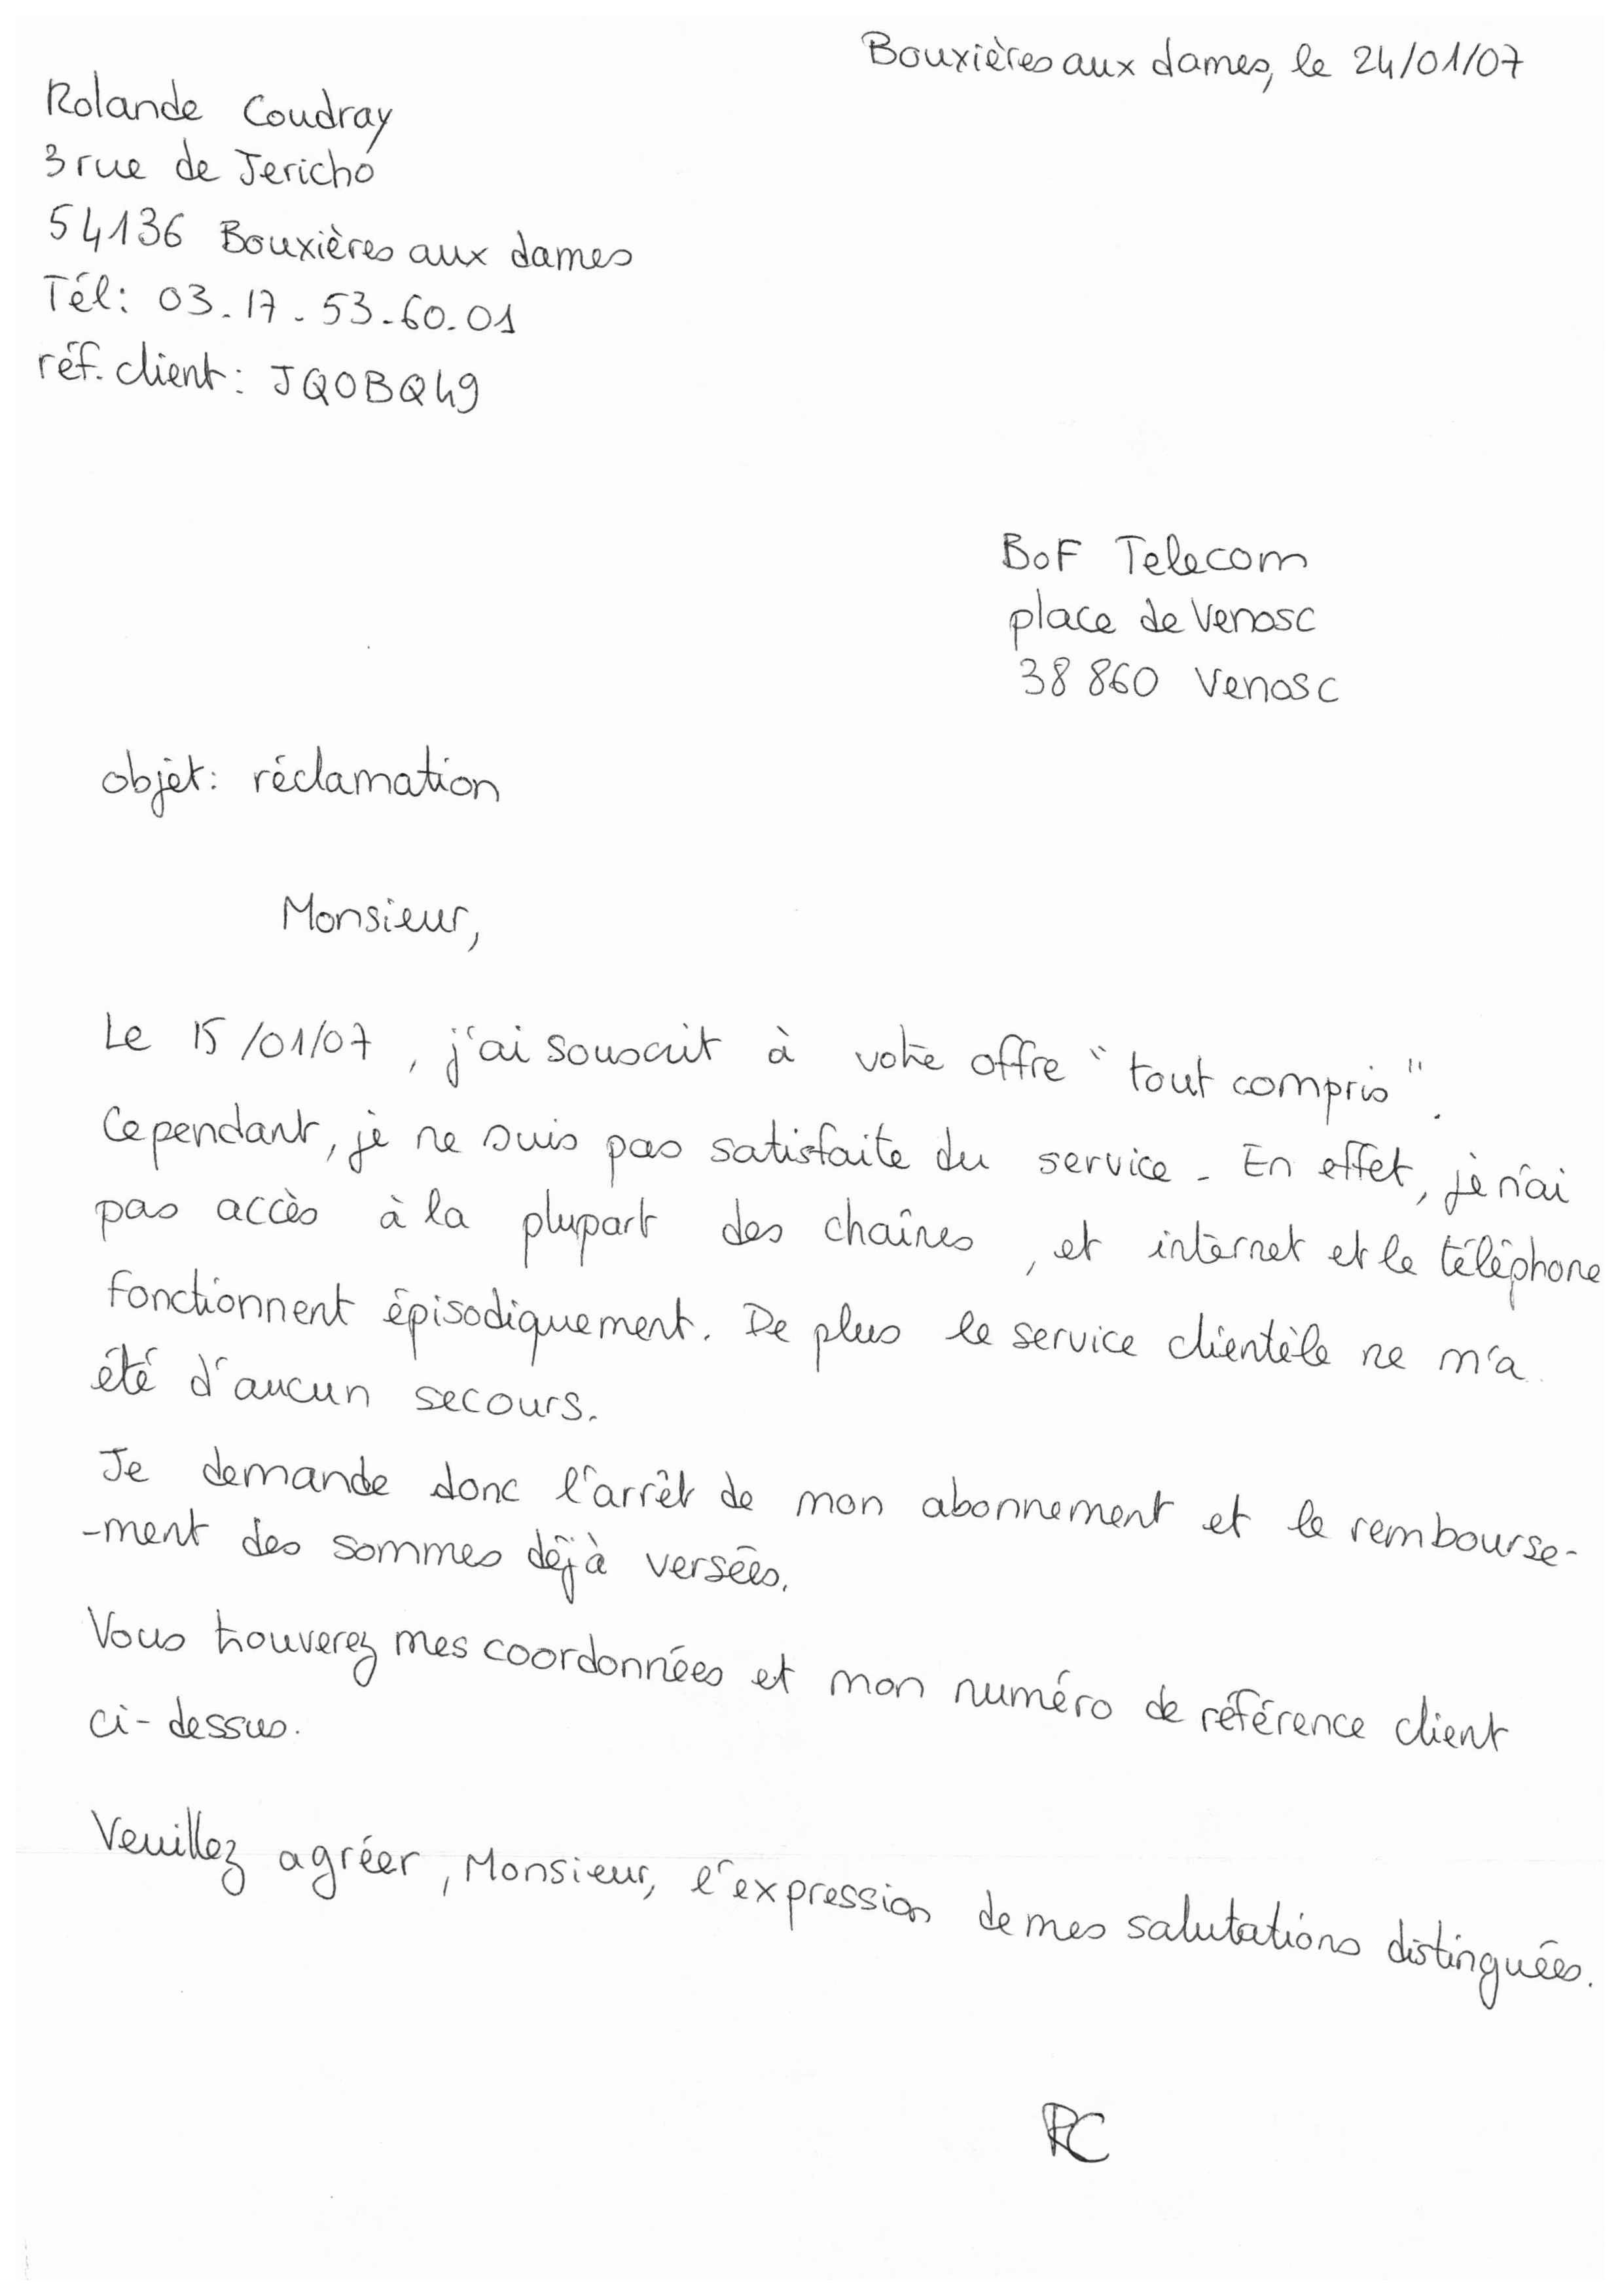 Bouxières aux dames, le 24/01/07
Rolande Coudray
3 rue de Jericho
54136 Bouxières aux dames
Tél: 03.17.53.60.01
réf. client: JQOBQ49
BoF Telecom
place de Venosc
38 860 Venosc
objet: réclamation
Monsieur,
Le 15/01/07, j'ai souscrit à votre offre "tout compris".
Cependant, je ne suis pas satisfaite du service. En effet, je n'ai
pas accès à la plupart des chaînes, et internet et le téléphone
fonctionnent épisodiquement. De plus le service clientèle ne m'a
été d'aucun secours.
Je demande donc l'arrêt de mon abonnement et le rembourse-
-ment des sommes déjà versées.
Vous trouverez mes coordonnées et mon numéro de référence client
ci-dessus.
Veuillez agréer, Monsieur, l'expression de mes salutations distinguées.
RC